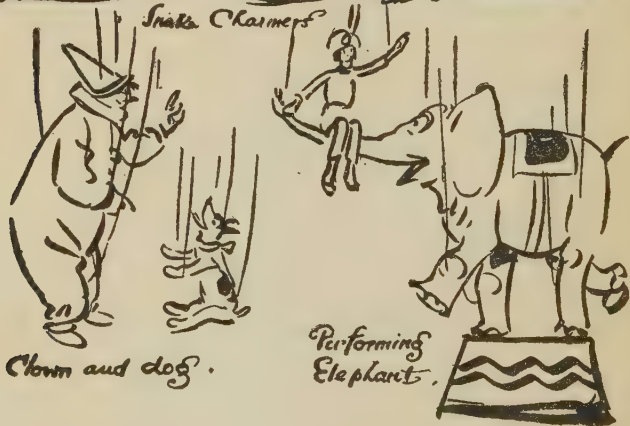 Snake Charmers
Clown and dog.
Performing
Elephant.